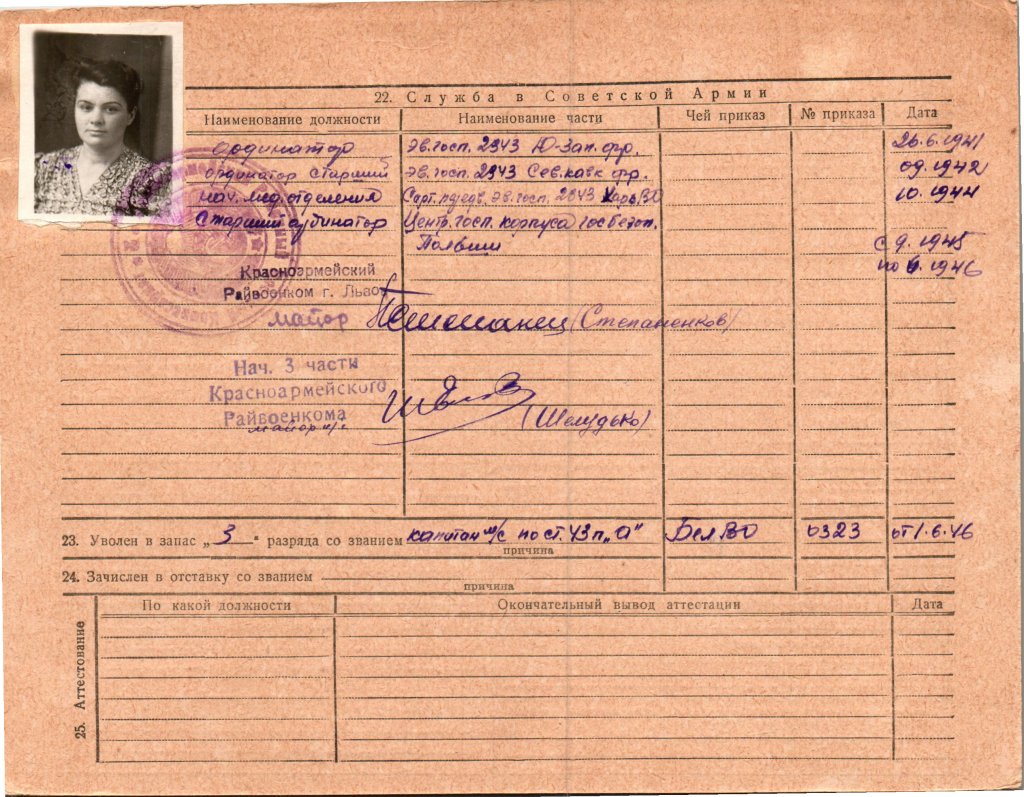 22. Служба в Советской Армии
Наименование должности Наименование части Чей приказ № приказа Дата
ординатор эв. госп. 2343 Ю-Зап. фр. 26.6.1941
ординатор старший эв. госп. 2343 Сев. кавк фр. 09.1942
нач. мед. отделения эв. госп. 2343 ХарВО 10.1944
старший ординатор Центр. госп. корпуса госбезоп.
Польши с 9. 1945
по 6. 1946
Красноармейский
Райвоенком г. Львов
майор (Степаненков)
Нач. 3 части
Красноармейского
Райвоенкома
майор (Шелудько)
23. Уволен в запас „ 3 “ разряда со званием капитан м/с по ст. 43 п. „а" БелВО 0323 от 1.6.46
причина
24. Зачислен в отставку со званием
причина
25. Аттестование
По какой должности Окончательный вывод аттестации Дата